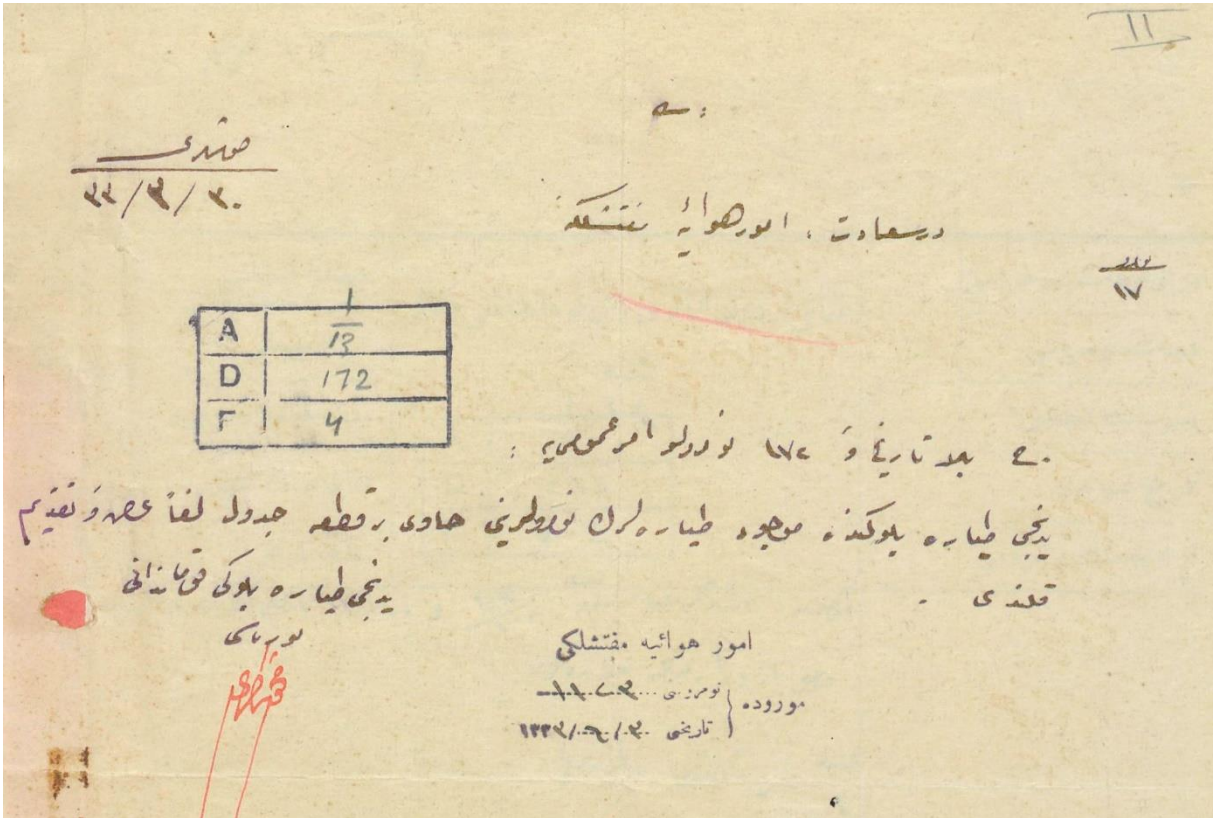 ١١
٣٠/٣/٣٣
درسعادت ، امور هوائیه مفتشلکنه
نومرو
١٧
A 1/13
D 172
F 4
ج بلا تاریخ و ١٧٢ نومرولو امر عمومی یه :
یدنجی طیاره بلوکنده موجود طیاره لرك نومرولرینی حاوی بر قطعه جدول لفاً عرض و تقدیم
قلندی .
یدنجی طیاره بلوکی قوماندانی
یوزباشی
امور هوائیه مفتشلکی
موروده
نومروسی
تاریخی ١٣٣٣